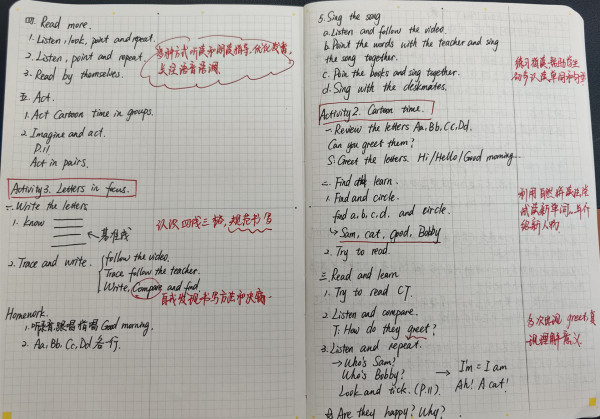 四. Read more.
1. Listen, look, point and repeat.
2. Listen, point and repeat.
3. Read by themselves.
五. Act.
1. Act Cartoon time in groups.
2. Imagine and act.
P.11
Act in pairs.
Activity3. Letters in focus.
一. Write the letters
1. Know
←基准线
2. Trace and write.
follow the video.
Trace follow the teacher.
Write, Compare and find
认识四线三格,规范书写
自我发现书写方法和决窍
Homework.
1. 听录音,跟唱指唱 Good morning.
2. Aa, Bb, Cc, Dd 各一行.
5. Sing the song
a. Listen and follow the video.
b. Point the words with the teacher and sing
the song together.
c. Poin the books and sing together.
d. Sing with the deskmates.
Activity2. Cartoon time.
一. Review the letters Aa, Bb, Cc, Dd.
Can you greet them?
S: Greet the letters. Hi/Hello/Good morning...
二. Find the learn.
1. Find and circle.
find a, b, c, d. and circle.
↳ Sam, cat, good, Bobby
2. Try to read.
三. Read and learn
1. Try to read CT.
2. Listen and compare.
T: How do they greet?
3. Listen and repeat.
→ Who's Sam?
Who's Bobby?
Look and tick. (P.11)
→ I'm = I am
Ah! A cat!
☆ Are they happy? Why?
利用自然拼读
多次出现 greet,
理解意义